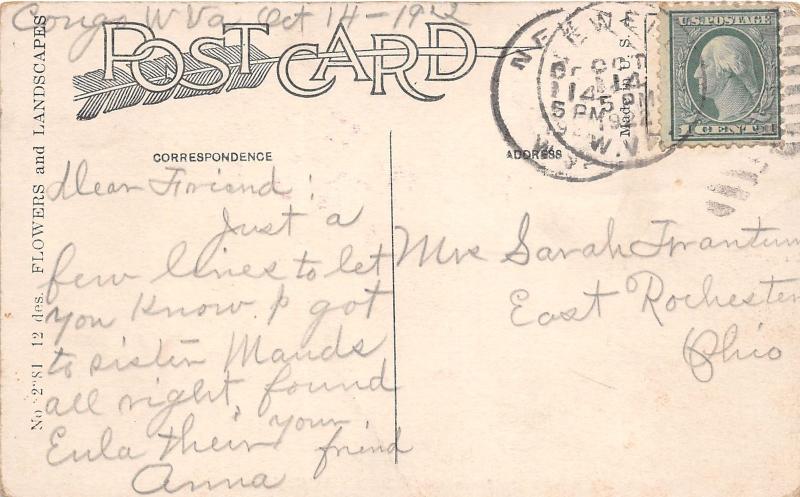 Congo W Va Oct 14-1922
POST CARD
NEWELL
OCT
14
5 PM
1922
W.VA.
U.S. POSTAGE
1 CENT 1
Made in U. S. A.
CORRESPONDENCE
ADDRESS
Dear Friend!
Just a
few lines to let
you know I got
to sister Mauds
all right, found
Eula their, your
friend
Anna
Mrs Sarah Frantum
East Rochester
Ohio
12 des. FLOWERS and LANDSCAPES